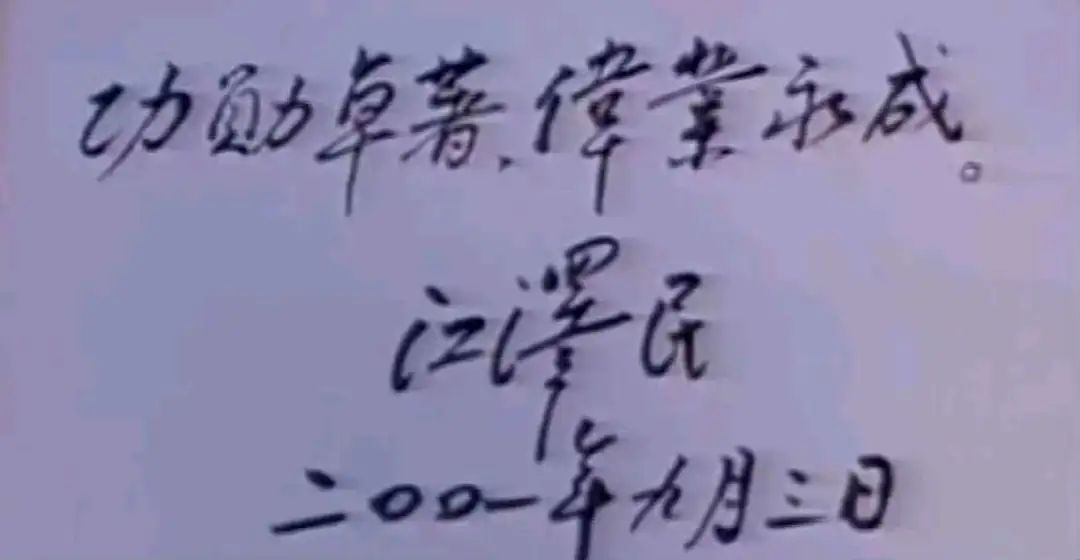 功勋卓著、偉業永成。
江澤民
二〇〇一年九月三日